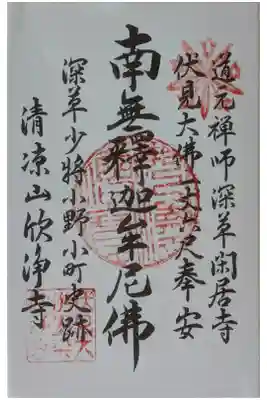 道元禅師深草閑居寺
伏見大佛一丈六尺奉安
南無釋迦牟尼佛
深草少将小野小町史跡
清涼山欣浄寺